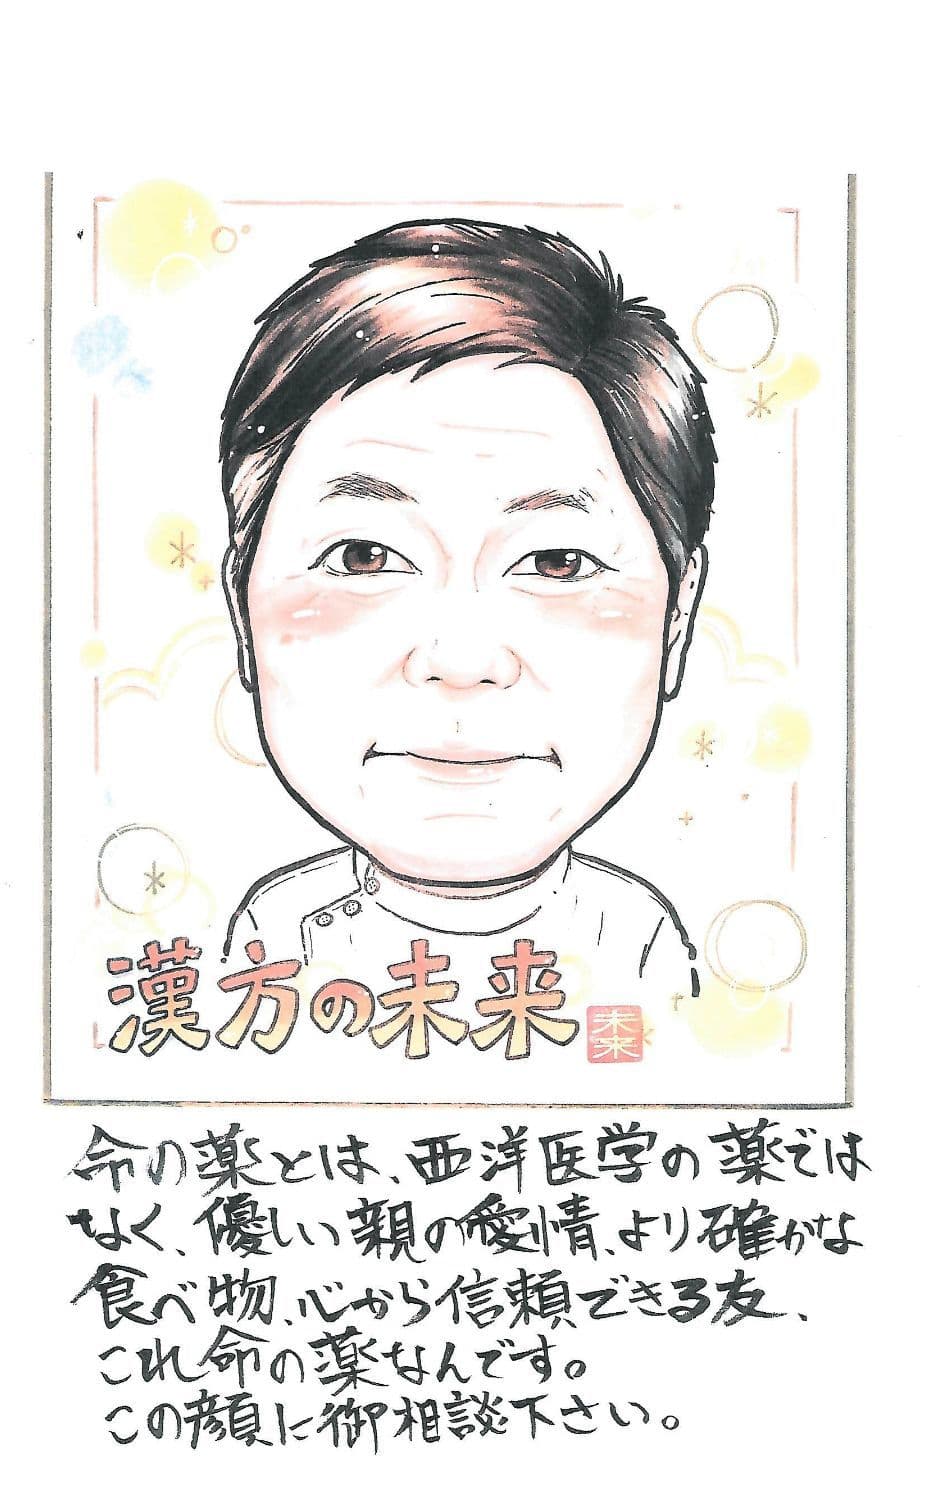 漢方の未来
未来
命の薬とは、西洋医学の薬では
なく、優しい親の愛情、より確かな
食べ物、心から信頼できる友、
これ命の薬なんです。
この顔に御相談下さい。